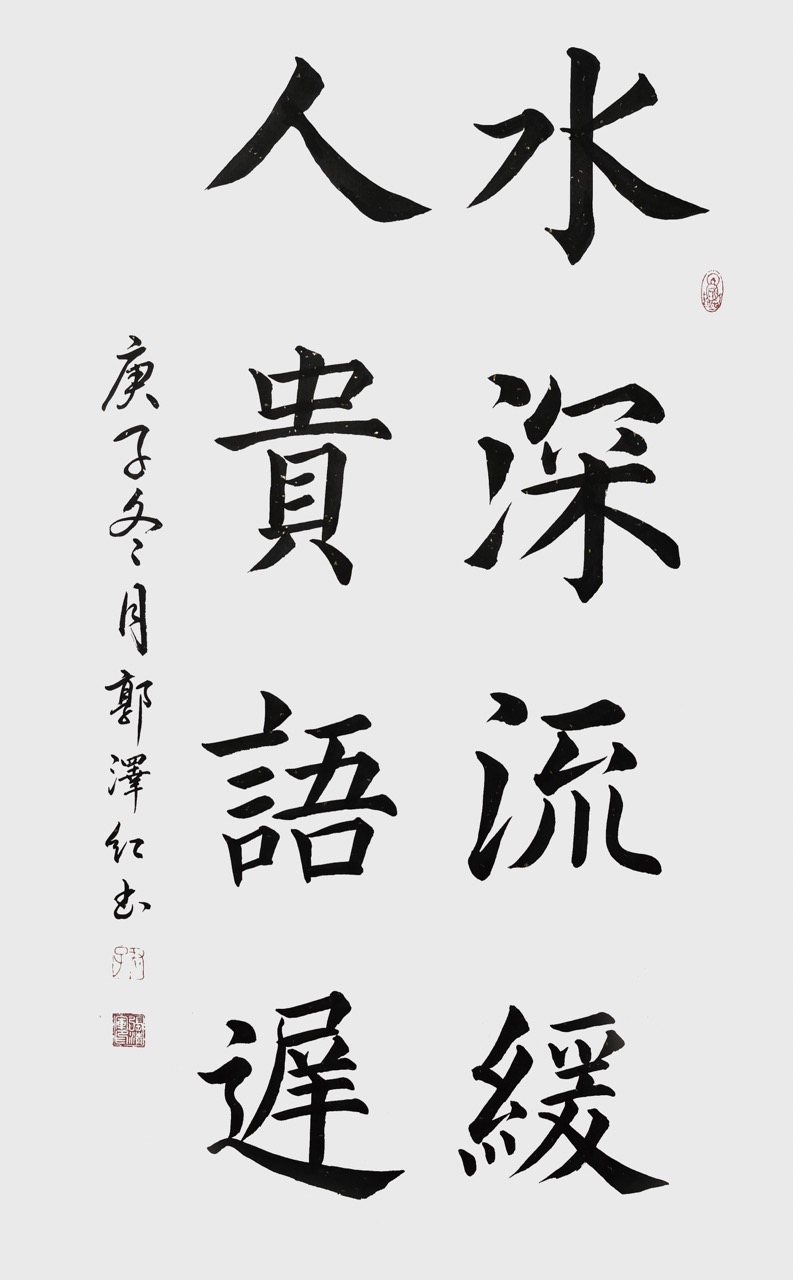 水深流緩
人貴語遲
庚子冬月郭澤紅书